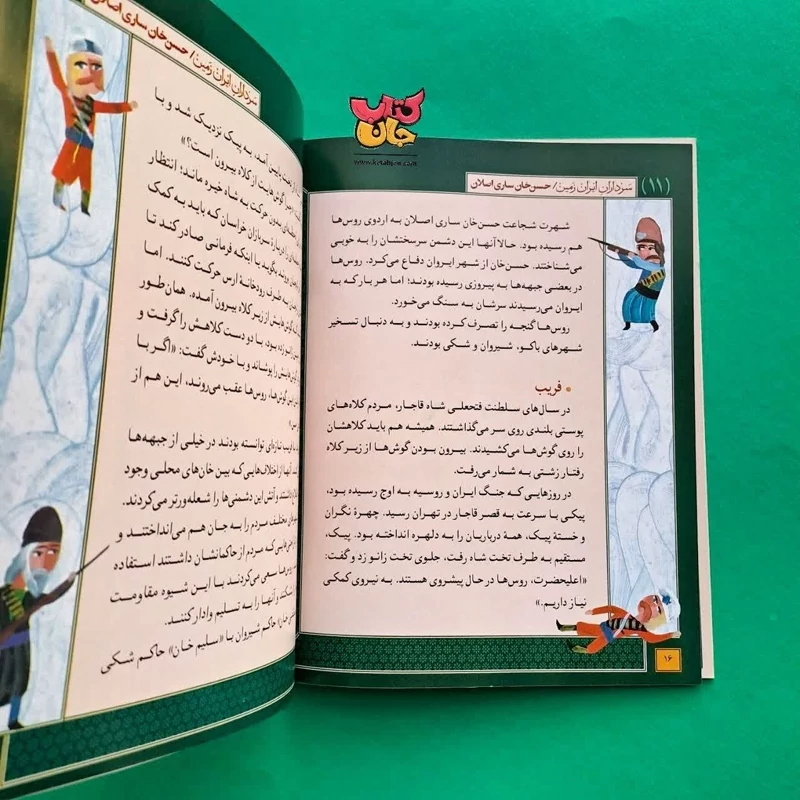 کتاب
جان
www.ketabjan.com
(۱۱) سرداران ایران زمین / حسن‌خان ساری اصلان
شهرت شجاعت حسن‌خان ساری اصلان به اردوی روس‌ها
هم رسیده بود. حالا آنها این دشمن سرسختشان را به خوبی
می‌شناختند. حسن‌خان از شهر ایروان دفاع می‌کرد. روس‌ها
در بعضی جبهه‌ها به پیروزی رسیده بودند؛ اما هر بار که به
ایروان می‌رسیدند سرشان به سنگ می‌خورد.
روس‌ها گنجه را تصرف کرده بودند و به دنبال تسخیر
شهرهای باکو، شیروان و شکی بودند.
• فریب
در سال‌های سلطنت فتحعلی شاه قاجار، مردم کلاه‌های
پوستی بلندی روی سر می‌گذاشتند. همیشه هم باید کلاهشان
را روی گوش‌ها می‌کشیدند. بیرون بودن گوش‌ها از زیر کلاه
رفتار زشتی به شمار می‌رفت.
در روزهایی که جنگ ایران و روسیه به اوج رسیده بود،
پیکی با سرعت به قصر قاجار در تهران رسید. چهرهٔ نگران
و خستهٔ پیک، همهٔ درباریان را به دلهره انداخته بود. پیک،
مستقیم به طرف تخت شاه رفت، جلوی تخت زانو زد و گفت:
«اعلیحضرت، روس‌ها در حال پیشروی هستند. به نیروی کمکی
نیاز داریم.»
۱۶
سرداران ایران زمین / حسن‌خان ساری اصلان
پایین آمد، به پیک نزدیک شد و با
گوش‌هایت از کلاه بیرون است؟»
بدون حرکت به شاه خیره ماند؛ انتظار
دربارهٔ سربازان خراسان که باید به کمک
بروند بگوید یا اینکه فرمانی صادر کند تا
به طرف رودخانهٔ ارس حرکت کنند. اما
گوش‌هایش از زیر کلاه بیرون آمده. همان‌طور
زده بود، با دو دست کلاهش را گرفت و
گوش‌هایش را پوشاند و با خودش گفت: «اگر با
این گوش‌ها، روس‌ها عقب می‌روند، این هم از
فریب تازه‌ای توانسته بودند در خیلی از جبهه‌ها
آنها از اختلاف‌هایی که بین خان‌های محلی وجود
داشتند و آتش این دشمنی را شعله‌ورتر می‌کردند.
مختلف مردم را به جان هم می‌انداختند و
که مردم از حاکمانشان داشتند استفاده
سعی می‌کردند با این شیوه مقاومت
و آنها را به تسلیم وادار کنند.
خان» حاکم شیروان با «سلیم خان» حاکم شکی